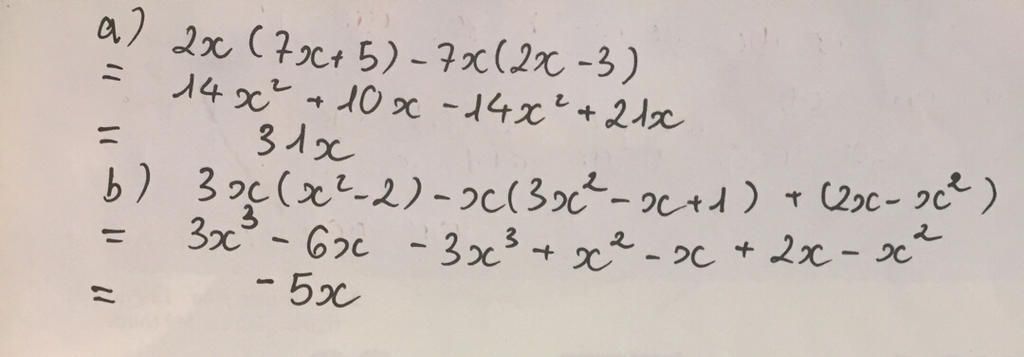 a) 2x (7x+5) - 7x(2x-3)
= 14x² + 10x - 14x² + 21x
= 31x
b) 3x(x²-2) - x(3x²-x+1) + (2x-x²)
= 3x³ - 6x - 3x³ + x² - x + 2x - x²
= -5x